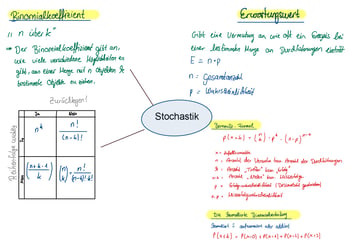 Binomialkoeffizient
"n über k"
→ Der Binomialkoeffizient gibt an,
wie viele verschiedene Möglichkeiten es
gibt, aus einer Menge mit n Objekten k
bestimmte Objekte zu ziehen.
Zurücklegen?
Ja
Nein
Reihenfolge wichtig
n^k
n! / (n-k)!
(n+k-1 / k)
(n / k) = n! / (n-k)! k!
Stochastik
Erwartungswert
Gibt eine Vermutung an wie oft ein Ereignis bei
einer bestimmten Menge an Durchführungen eintritt
E = n · p
n = Gesamtanzahl
p = Wahrscheinlichkeit
Bernoulli-Formel
P(X=k) = (n / k) · p^k · (1-p)^(n-k)
n = Anzahl der Versuche bzw. Anzahl der Durchführungen
k = Anzahl "Treffer" bzw. "Erfolg"
n-k = Anzahl "Nieten" bzw.
p = Erfolgswahrscheinlichkeit
1-p =
Die
P(X≤k) = P(X=0) + P(X=1) + P(X=2) + P(X=3)